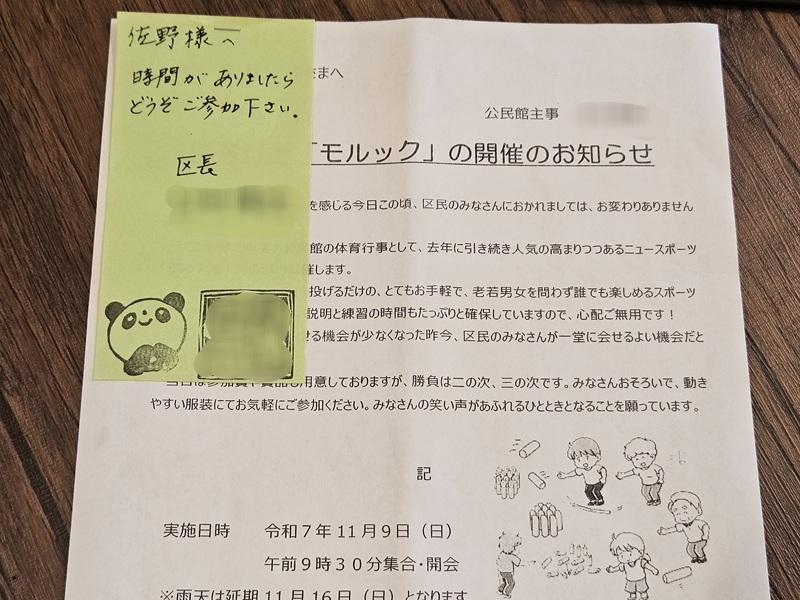 佐野様へ
時間がありましたら
どうぞご参加下さい。
区長
まへ
公民館主事
「モルック」の開催のお知らせ
を感じる今日この頃、区民のみなさんにおかれましては、お変わりありません
館の体育行事として、去年に引き続き人気の高まりつつあるニュースポーツ
催します。
投げるだけの、とてもお手軽で、老若男女を問わず誰でも楽しめるスポーツ
説明と練習の時間もたっぷりと確保していますので、心配ご無用です！
せる機会が少なくなった昨今、区民のみなさんが一堂に会せるよい機会だと
当日は参加賞や賞品も用意しておりますが、勝負は二の次、三の次です。みなさんおそろいで、動き
やすい服装にてお気軽にご参加ください。みなさんの笑い声があふれるひとときとなることを願っています。
記
実施日時 令和７年11月９日（日）
午前９時３０分集合・開会
※雨天は延期 11月16日（日）となります